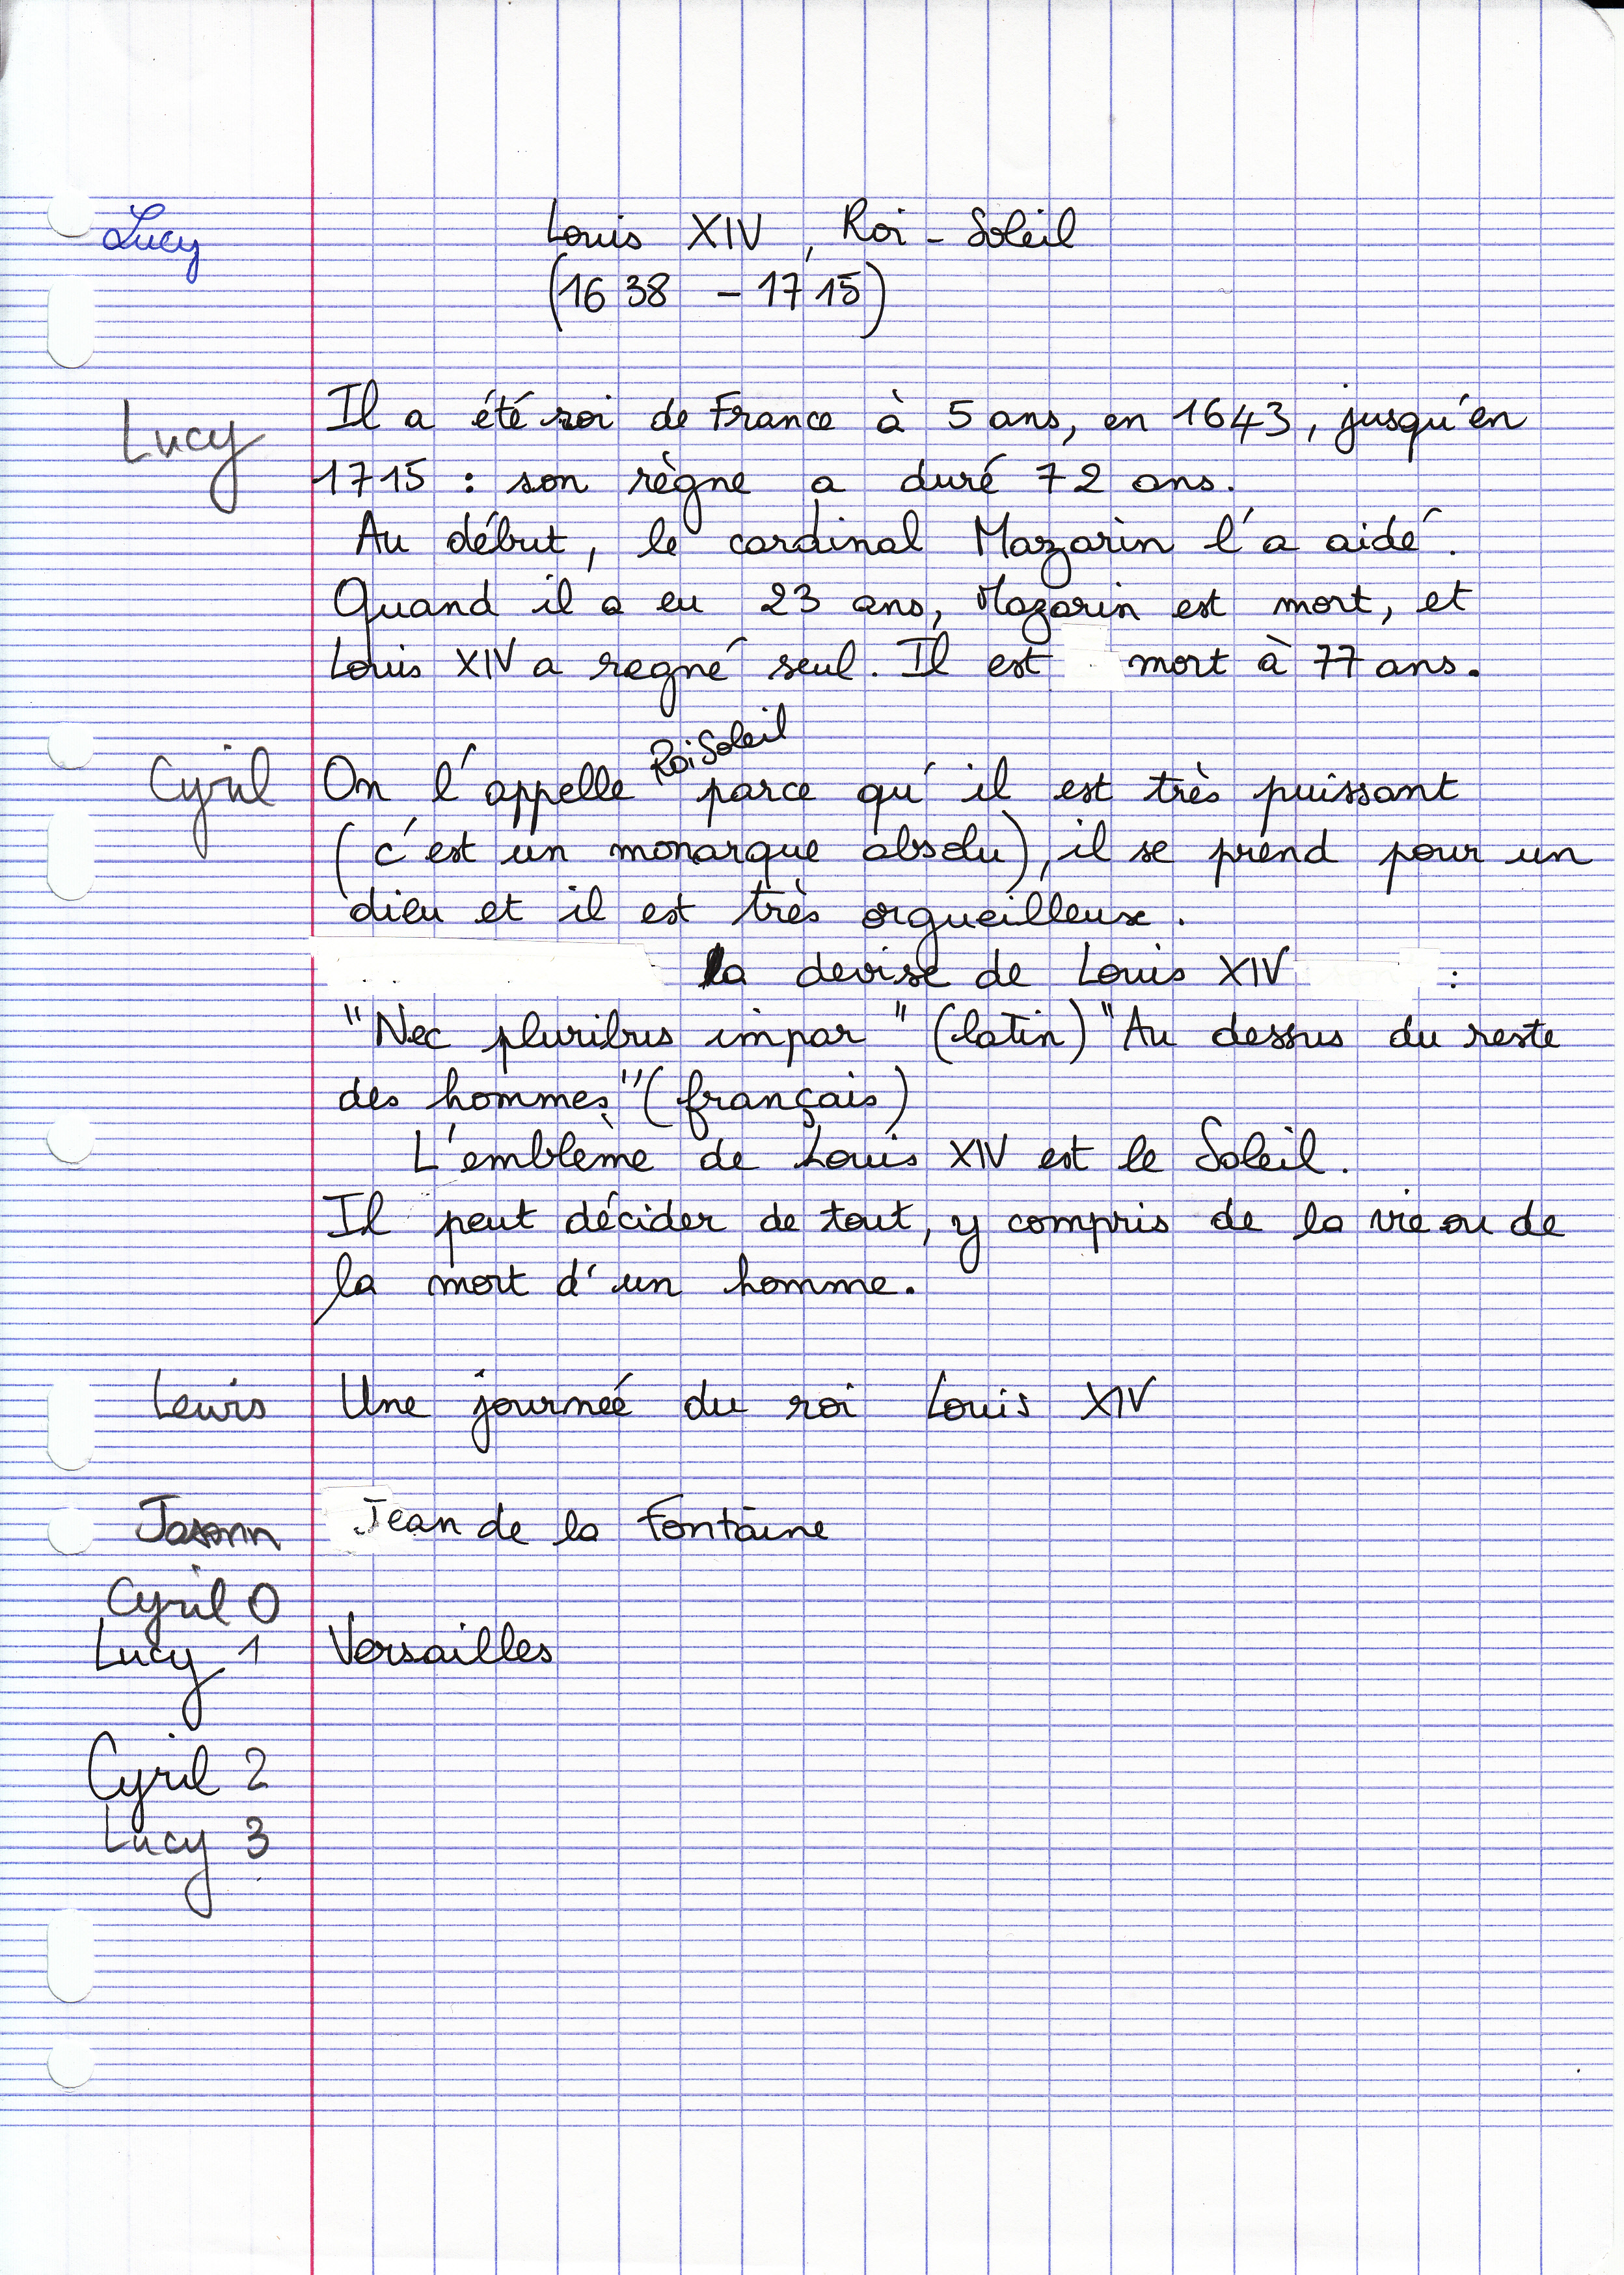 Lucy Louis XIV, Roi-Soleil
(1638 - 1715)
Lucy Il a été roi de France à 5 ans, en 1643, jusqu'en
1715 : son règne a duré 72 ans.
Au début, le cardinal Mazarin l'a aidé.
Quand il a eu 23 ans, Mazarin est mort, et
Louis XIV a regné seul. Il est mort à 77 ans.
Roi Soleil
Cyril On l'appelle parce qu'il est très puissant
(c'est un monarque absolu), il se prend pour un
dieu et il est très orgueilleux.
la devise de Louis XIV :
"Nec pluribus impar" (latin) "Au dessus du reste
des hommes" (français)
L'emblème de Louis XIV est le Soleil.
Il peut décider de tout, y compris de la vie ou de
la mort d'un homme.
Lewis Une journée du roi Louis XIV
Jean de la Fontaine
Cyril 0
Lucy 1 Versailles
Cyril 2
Lucy 3